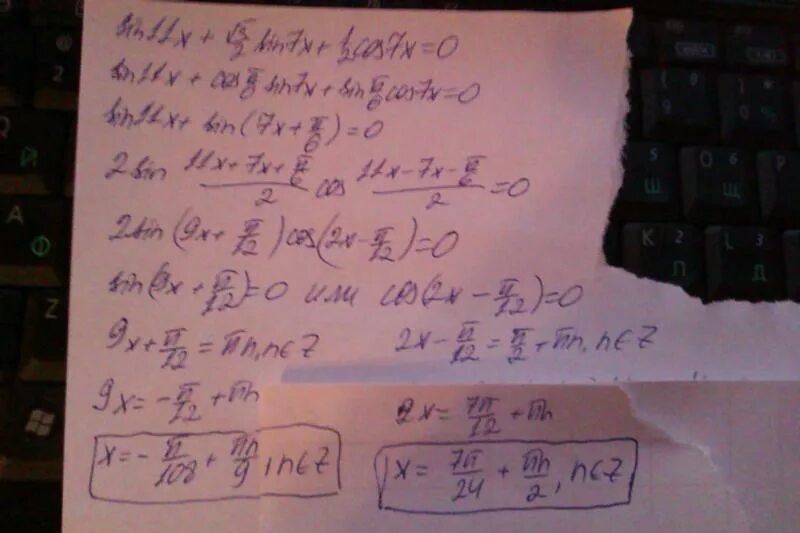 sin11x + √3/2 sin7x + 1/2 cos7x = 0
sin11x + cos π/6 sin7x + sin π/6 cos7x = 0
sin11x + sin(7x + π/6) = 0
2sin (11x + 7x + π/6)/2 cos (11x - 7x - π/6)/2 = 0
2sin(9x + π/12)cos(2x - π/12) = 0
sin(9x + π/12) = 0 или cos(2x - π/12) = 0
9x + π/12 = πn, n∈Z 2x - π/12 = π/2 + πn, n∈Z
9x = -π/12 + πn 2x = 7π/12 + πn
x = -π/108 + πn/9, n∈Z x = 7π/24 + πn/2, n∈Z
Q Й
A Ф
2
5 Ш
6 O
K 2 Л
L Д